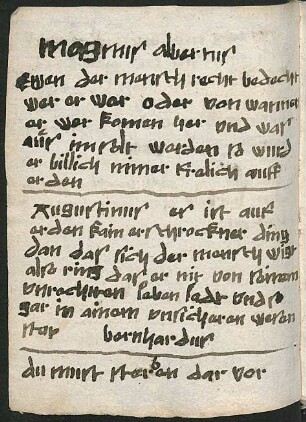 magnus albertus
wen der mensch recht bedecht
wer er wer oder von wannen
er wer komen her vnd was
aus im solt werden so wurd
er billich nimer frolich auff
erden
Augustinus es ist auf
erden kain erschrockner ding
dan das sich der mensch
also ring das er nit von seinem
vnrechten leben ladt vnd so
gar in ainem vnsicheren wesen
star bernhardus
du must sterben dar vor